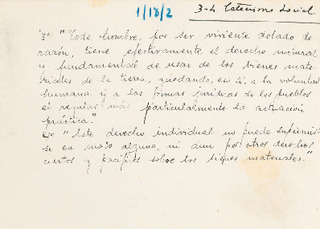 1/18/2
3-4 Catecismo Social
3º "Todo hombre, por ser viviente dotado de
razón, tiene efectivamente el derecho natural
y fundamental de usar de los bienes mate-
riales de la tierra, quedando, eso sí, a la voluntad
humana y a las formas jurídicas de los pueblos
el regular más particularmente la actuación
práctica."
"Este derecho individual no puede suprimir-
se en modo alguno, ni aun por otros derechos
ciertos y pacíficos sobre los bienes materiales."